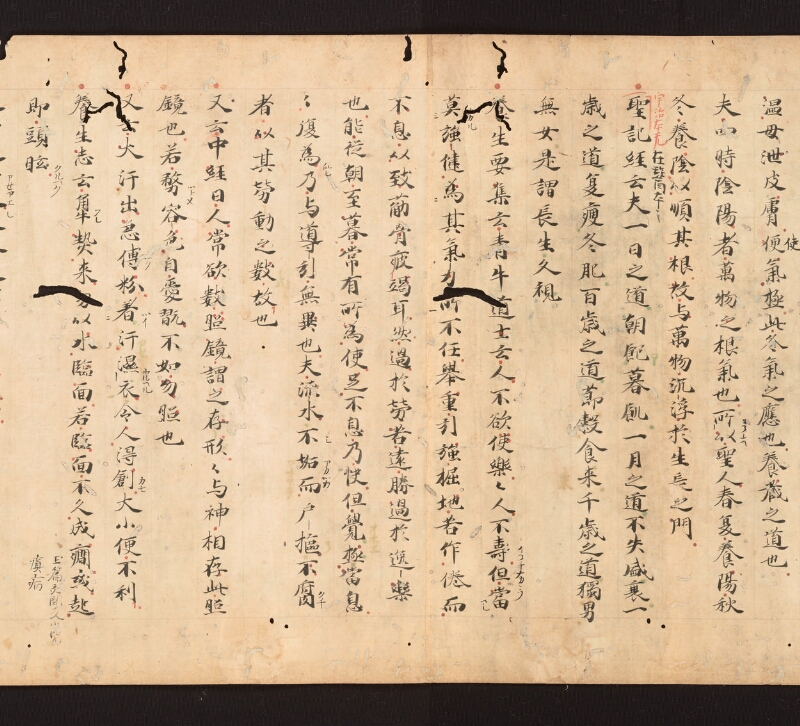 温毋泄皮膚使氣極此冬氣之應也養藏之道也
夫四時陰陽者萬物之根氣也所以聖人春夏養陽秋
冬養陰以順其根故与萬物沉浮於生長之門
聖記経云夫一日之道朝飽暮飢一月之道不失盛衰一
歳之道夏瘦冬肥百歳之道節穀食来千歳之道獨男
無女是謂長生久視
養生要集云青牛道士云人不欲使樂々人不壽但當
莫強健為其氣力所不任舉重引強掘地若作倦而
不息以致筋骨疲竭耳然過於勞若遠勝過於逸樂
也能従朝至暮常有所為使足不息乃快但覺極當息
々復為乃与導引無異也夫流水不垢而戸樞不腐
者以其勞動之數故也
又云中経曰人常欲數照鏡謂之存形々与神相存此照
鏡也若務容色自愛翫不如勿照也
又云大汗出急傅粉着汗濕衣令人得創大小便不利
養生志云熱来勿以水臨面若臨面不久成癎或起
即頭眩